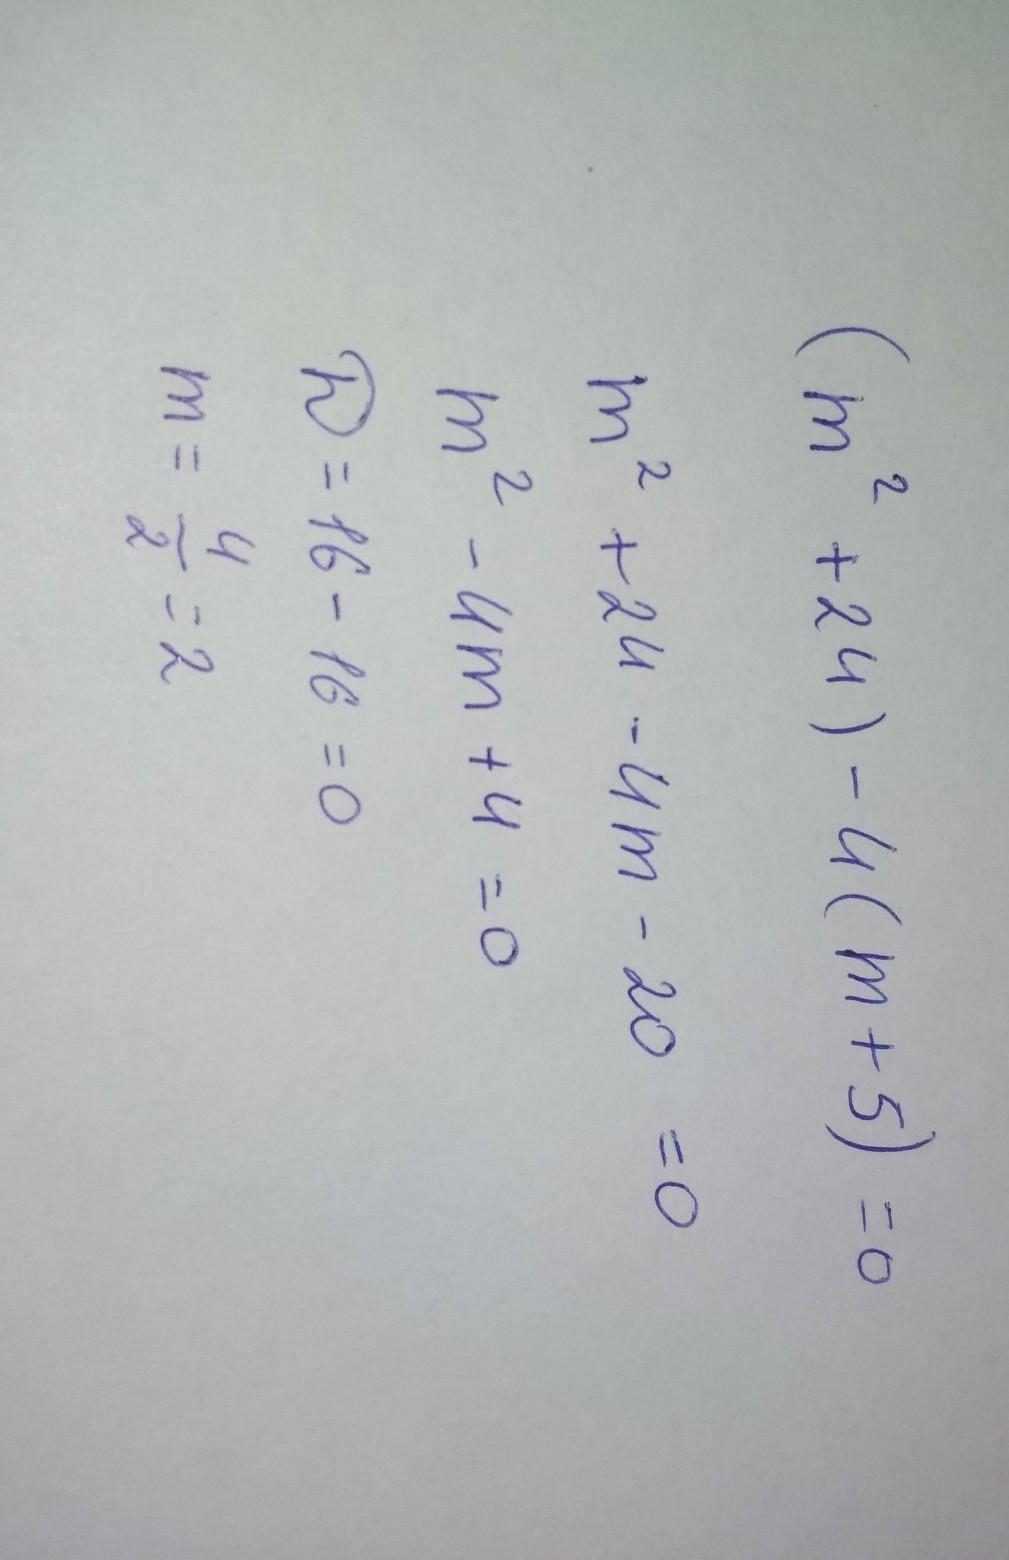 (m² + 24) - 4(m + 5) = 0
m² + 24 - 4m - 20 = 0
m² - 4m + 4 = 0
D = 16 - 16 = 0
m = 4/2 = 2